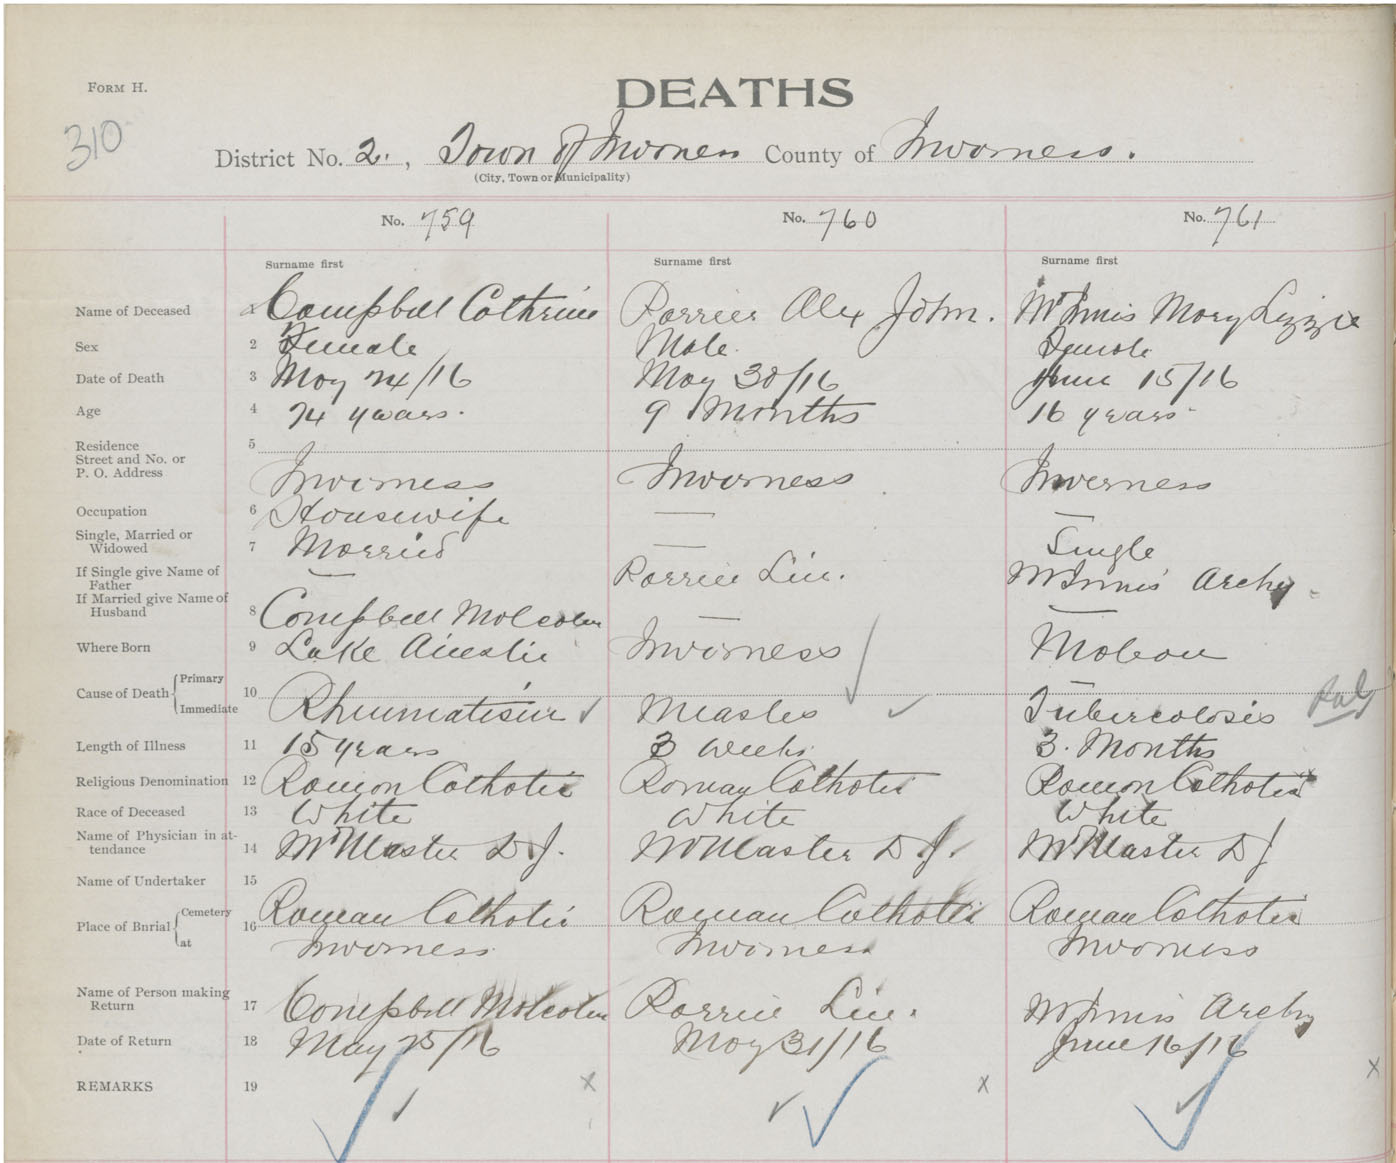 FORM H.
DEATHS
310
District No. 2. , Town of Inverness County of Inverness.
(City, Town or Municipality)
No. 759 No. 760 No. 761
Surname first Surname first Surname first
Name of Deceased 1 Campbell Cathrine Alex John. McInnis Mary Lizzie
Sex 2 Female Male. Female
Date of Death 3 May 24/16 May 30/16 June 15/16
Age 4 74 years. 9 Months 16 years
Residence 5
Street and No. or
P. O. Address Inverness Inverness Inverness
Occupation 6 Housewife — —
Single, Married or
Widowed 7 Married — Single
If Single give Name of
Father — McInnis Archy
If Married give Name of
Husband 8 Campbell Malcolm — —
Where Born 9 Lake Ainslie Inverness Mabou
Cause of Death Primary 10 —
Immediate Rheumatism Measles Tuberculosis Pul
Length of Illness 11 15 years 3 weeks 3. Months
Religious Denomination 12 Roman Catholic Roman Catholic Roman Catholic
Race of Deceased 13 White White White
Name of Physician in at-
tendance 14 McMaster D J. McMaster D. J. McMaster D J
Name of Undertaker 15
Place of Burial Cemetery 16 Roman Catholic Roman Catholic Roman Catholic
at Inverness Inverness Inverness
Name of Person making
Return 17 Campbell Malcolm McInnis Archy
Date of Return 18 May 25/16 May 31/16 June 16/16
REMARKS 19 x x x